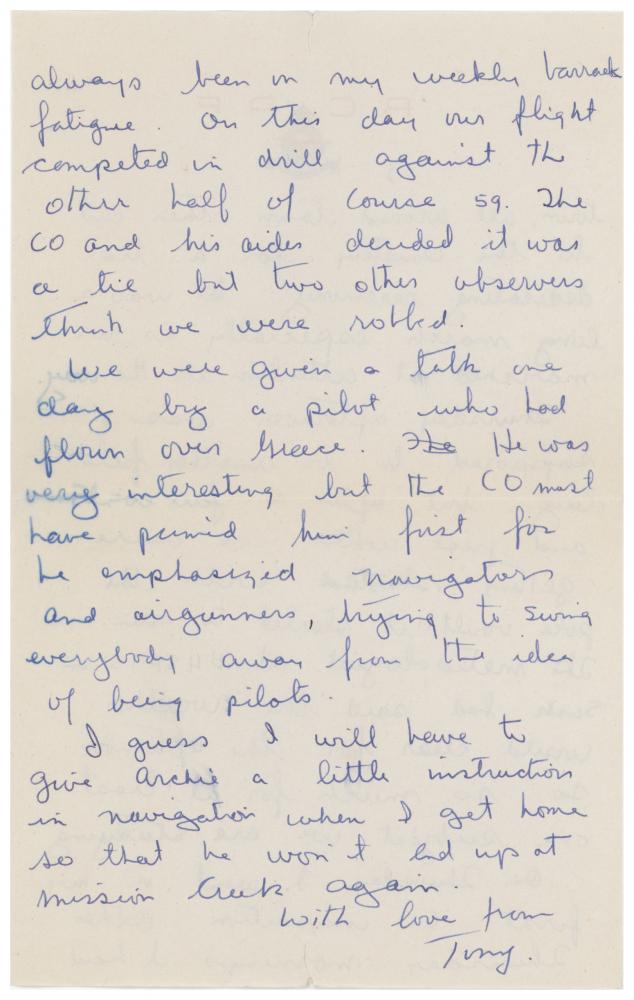 always been on my weekly barrack
fatigue. On this day our flight
competed in drill against the
other half of Course 59. The
CO and his aides decided it was
a tie but two other observers
think we were robbed.
We were given a talk one
day by a pilot who had
flown over Greece. The He was
very interesting but the CO must
have primed him first for
he emphasized navigators
and airgunners, trying to swing
everybody away from the idea
of being pilots.
I guess I will have to
give Archie a little instruction
in navigation when I get home
so that he won't end up at
Mission Creek again.
With love from
Tony.